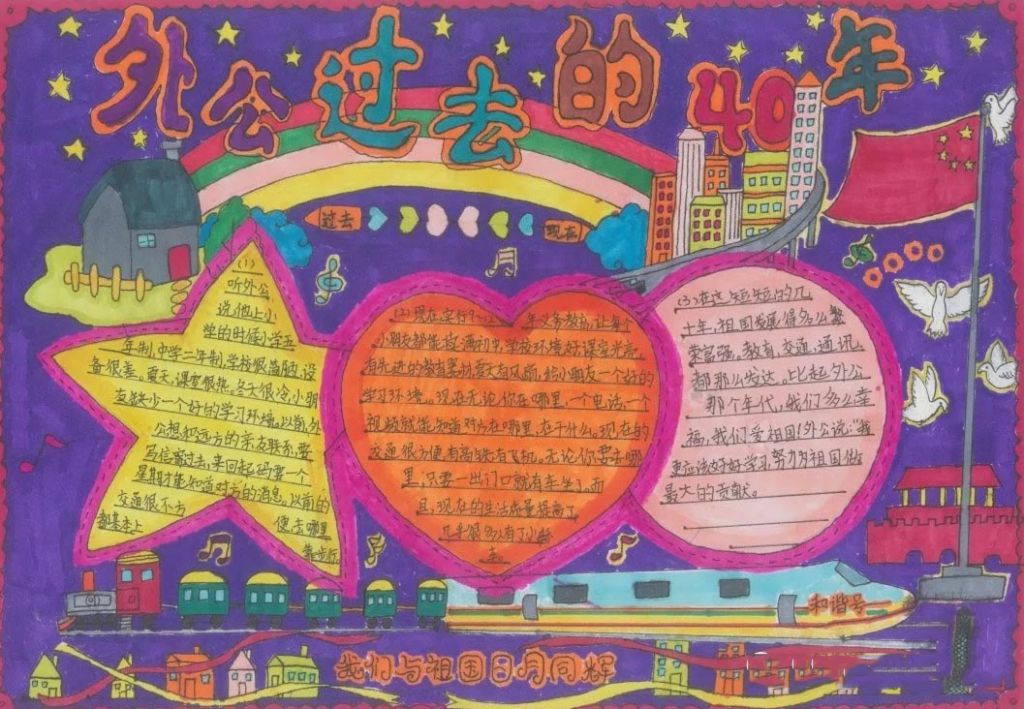 外公过去的40年
过去
现在
(1)
听外公
说,他上小
学的时候,小学五
年制,中学二年制,学校很简陋,设
备很差。夏天,课堂很热,冬天很冷,小朋
友缺少一个好的学习环境。以前,外
公想和远方的亲友联系,要
写信寄过去,来回起码要一个
星期才能知道对方的消息。以前的
交通很不方
便去哪里
都基本上
靠步行。
(2)现在,实行9 年义务教育,让每个
小朋友都能读满初中,学校环境好,课室光亮,
有先进的教育器材,夏天有风扇,给小朋友一个好的
学习环境。现在无论你在哪里,一个电话,一个
视频就能知道对方在哪里,在干什么。现在的
交通很方便,有高铁,有飞机。无论你要去哪
里,只要一出门口就有车坐了。而
且,现在的生活质量提高了,
几乎很多人有了小轿
车。
(3)在这短短的几
十年,祖国发展得多么繁
荣富强。教育、交通、通讯,
都那么发达。比起外公
那个年代,我们多么幸
福,我们爱祖国!外公说:“我
更应该好好学习,努力为祖国做
最大的贡献。
和谐号
我们与祖国日月同辉